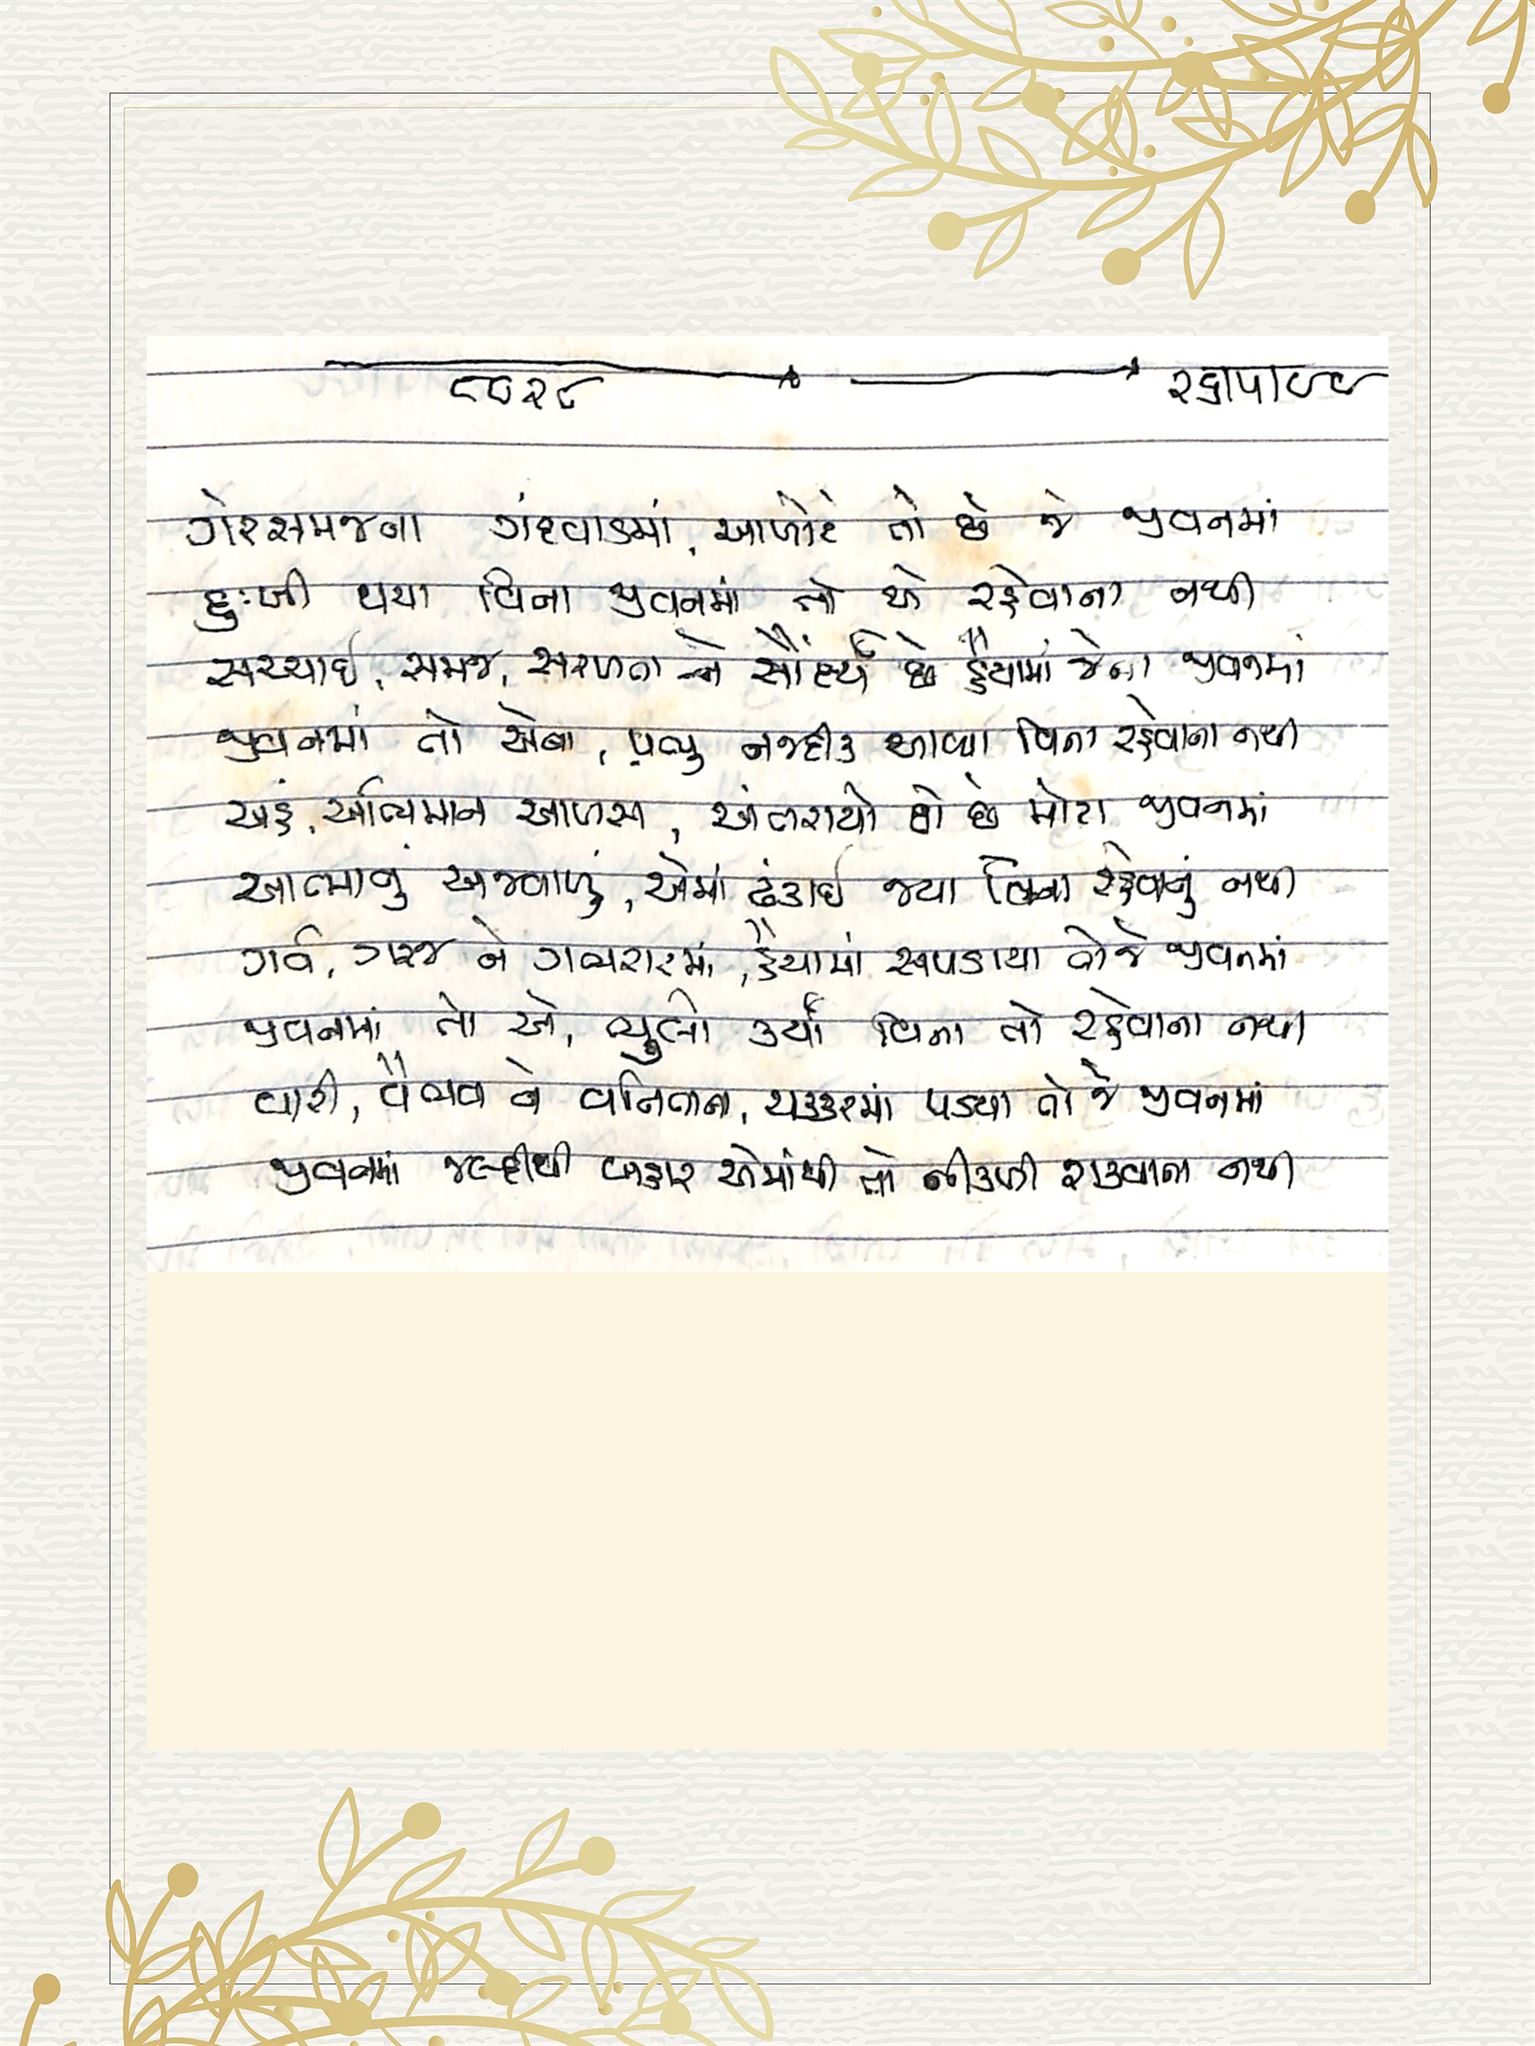 ૮૦૨૮ ૨૬ાપા૯૯
ગેરસમજના ગંદવાડમાં, આળોટે તો છે જે જીવનમાં
દુઃખી થયા વિના જીવનમાં તો એ રહેવાના નથી
સચ્ચાઈ, સમજ, સરળતા ને સૌંદર્ય છે હૈયામાં જેના જીવનમાં
જીવનમાં તો એવા, પ્રભુ નજદીક આવ્યા વિના રહેવાના નથી
અહં, અભિમાન આળસ, અંતરાયો છે મોટા જીવનમાં
આત્માનું અજવાળું, એમાં ઢંકાઈ જયા વિના રહેવાનું નથી
ગર્વ, ગરજ ને ગભરાટમાં, હૈયામાં સપડાયા જે જીવનમાં
જીવનમાં તો એ, ભૂલો કર્યા વિના તો રહેવાના નથી
વારી, વૈભવ ને વનિતાના, ચક્કરમાં પડયા તો જે જીવનમાં
જીવનમાં જલ્દીથી બહાર એમાંથી તો નીકળી શકવાના નથી